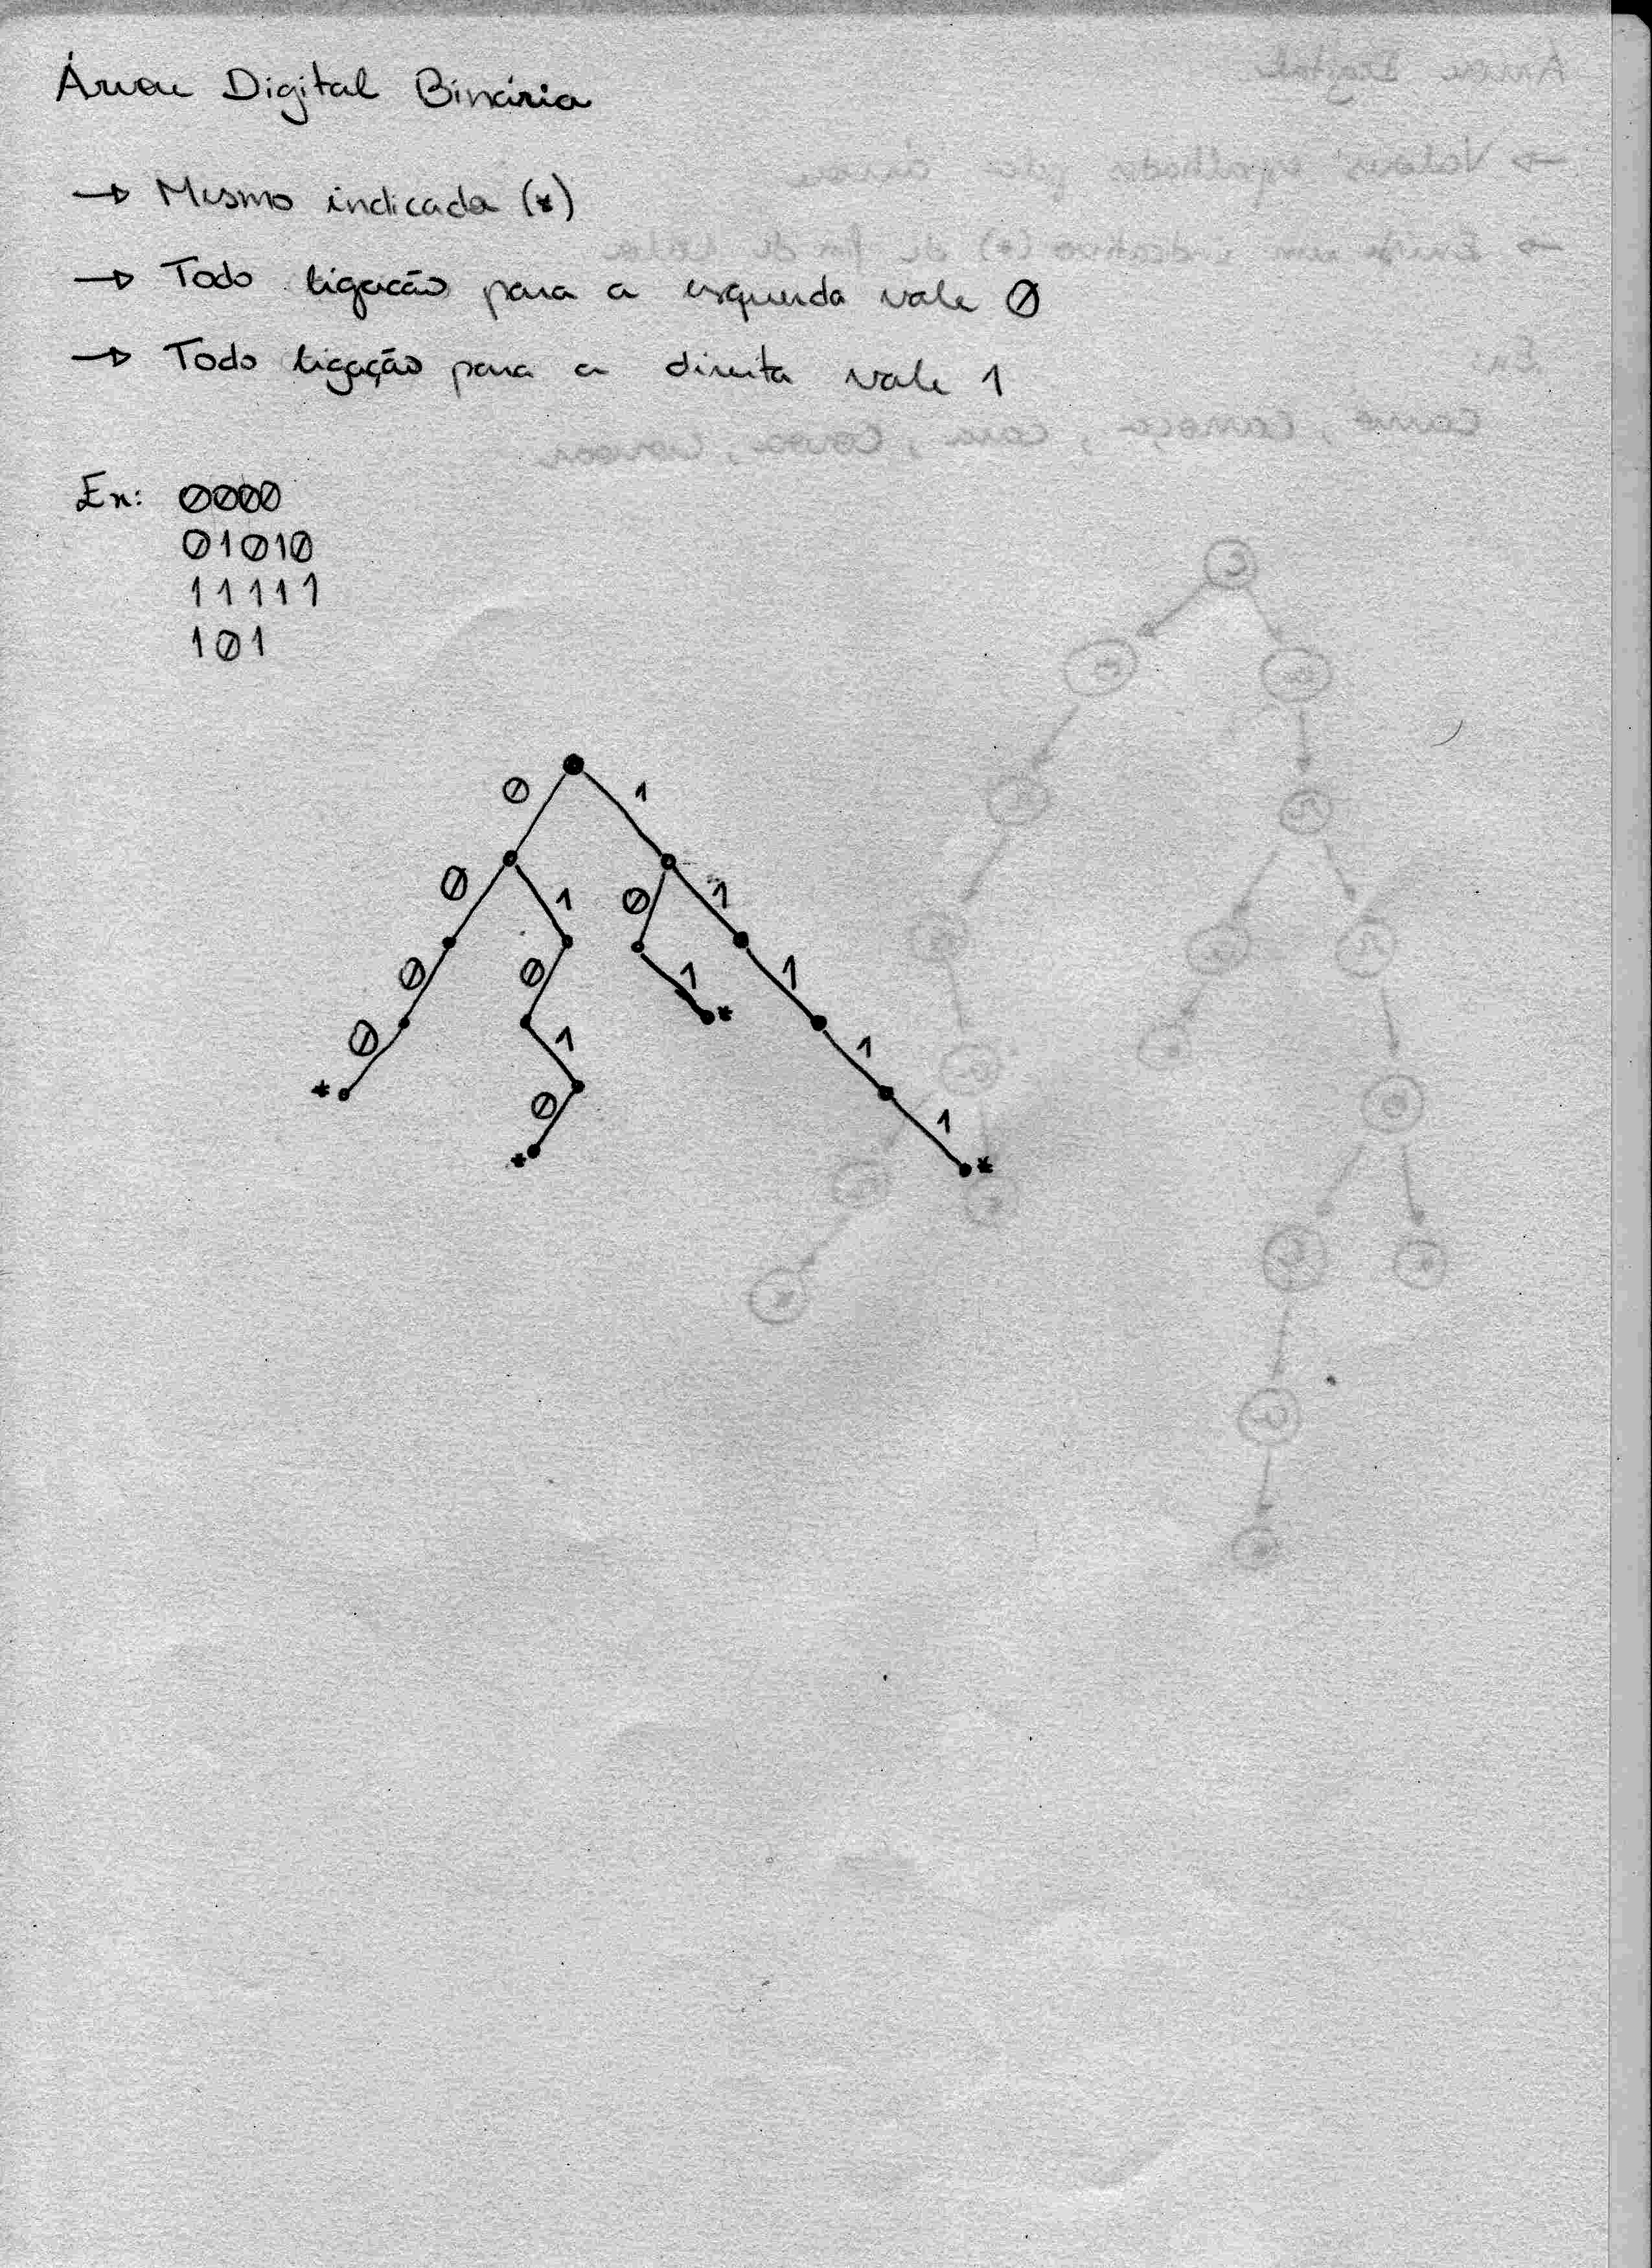 Árvore Digital Binária
→ Mesmo indicada (*)
→ Todo ligação para a esquerda vale 0
→ Todo ligação para a direita vale 1
Ex: 0000
01010
11111
101
0 1
0 1 0 1
0 0 1 1
0 1 * 1
* 0 1
* *